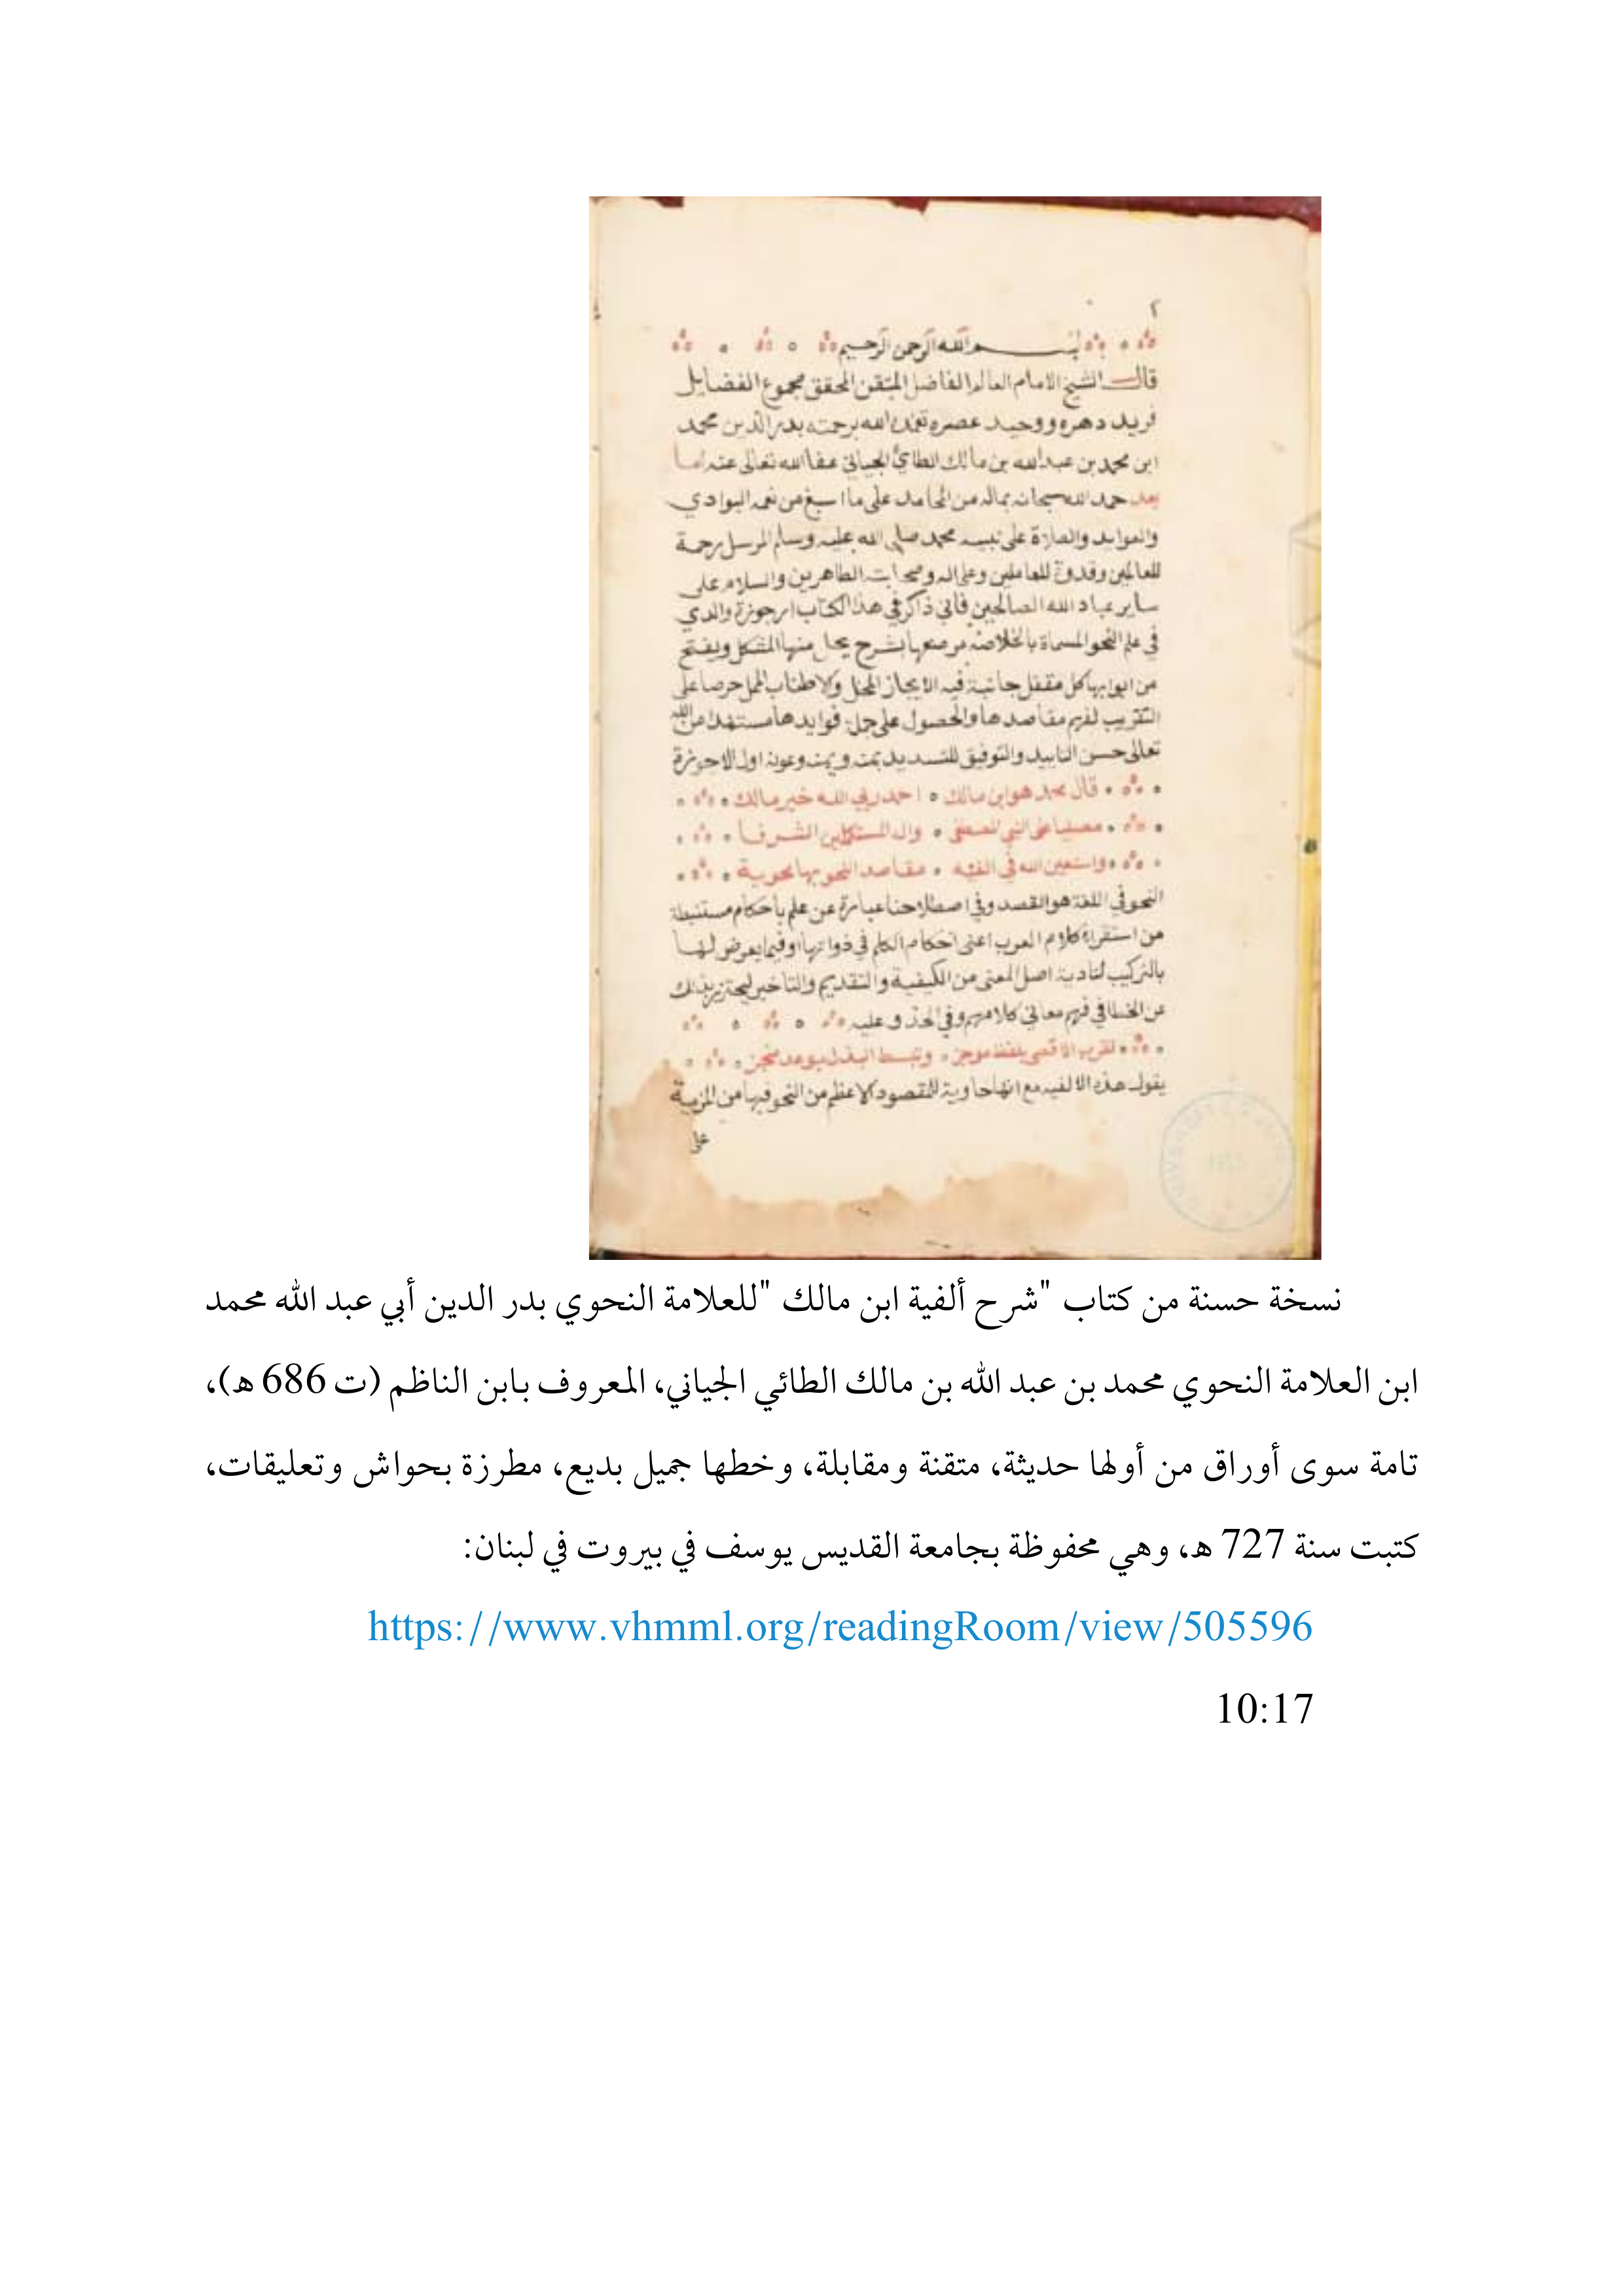 ٢
بسم الله الرحمن الرحيم
قال الشيخ الامام العالم الفاضل المتقن المحقق مجموع الفضايل
فريد دهره ووحيد عصره تغمده الله برحمته بدر الدين محمد
ابن محمد بن عبد الله بن مالك الطائي الجياني عفا الله تعالى عنه اما
بعد حمد الله سبحانه بماله من المحامد على ما اسبغ من نعمه البوادي
والعوايد والصلاة على نبيه محمد صلى الله عليه وسلم المرسل رحمة
للعالمين وقدوة للعاملين وعلى اله وصحابته الطاهرين والسلام على
ساير عباد الله الصالحين فاني ذاكر في هذا الكتاب ارجوزة والدي
في علم النحو المسماة بالخلاصة مرصعها بشرح يحل منها المشكل ويفتح
من ابوابها كل مقفل جانبة فيه الايجاز المخل والاطناب الممل حرصا على
التقريب لفهم مقاصدها والحصول على جل فوايدها مستمدا من الله
تعالى حسن التاييد والتوفيق للتسديد بمنه ويمنه وعونه اول الارجوزة
قال محمد هو ابن مالك احمد ربي الله خير مالك
مصليا على النبي المصطفى واله المستكملين الشرفا
واستعين الله في الفيه مقاصد النحو بها محوية
النحو في اللغة هو القصد وفي اصطلاحنا عبارة عن علم باحكام مستنبطة
من استقراء كلام العرب اعنى احكام الكلم في ذواتها او فيما يعرض لها
بالتركيب لتادية اصل المعنى من الكيفية والتقديم والتاخير ليحترز بذلك
عن الخطا في فهم معاني كلامهم وفي الحذو عليه
تقرب الاقصى بلفظ موجز وتبسط البذل بوعد منجز
يقول هذه الالفيه مع انها حاوية للمقصود الاعظم من النحو فيها من المزية
على
نسخة حسنة من كتاب "شرح ألفية ابن مالك "للعلامة النحوي بدر الدين أبي عبد الله محمد
ابن العلامة النحوي محمد بن عبد الله بن مالك الطائي الجياني، المعروف بابن الناظم (ت 686 هـ)،
تامة سوى أوراق من أولها حديثة، متقنة ومقابلة، وخطها جميل بديع، مطرزة بحواش وتعليقات،
كتبت سنة 727 هـ، وهي محفوظة بجامعة القديس يوسف في بيروت في لبنان:
https://www.vhmml.org/readingRoom/view/505596
10:17